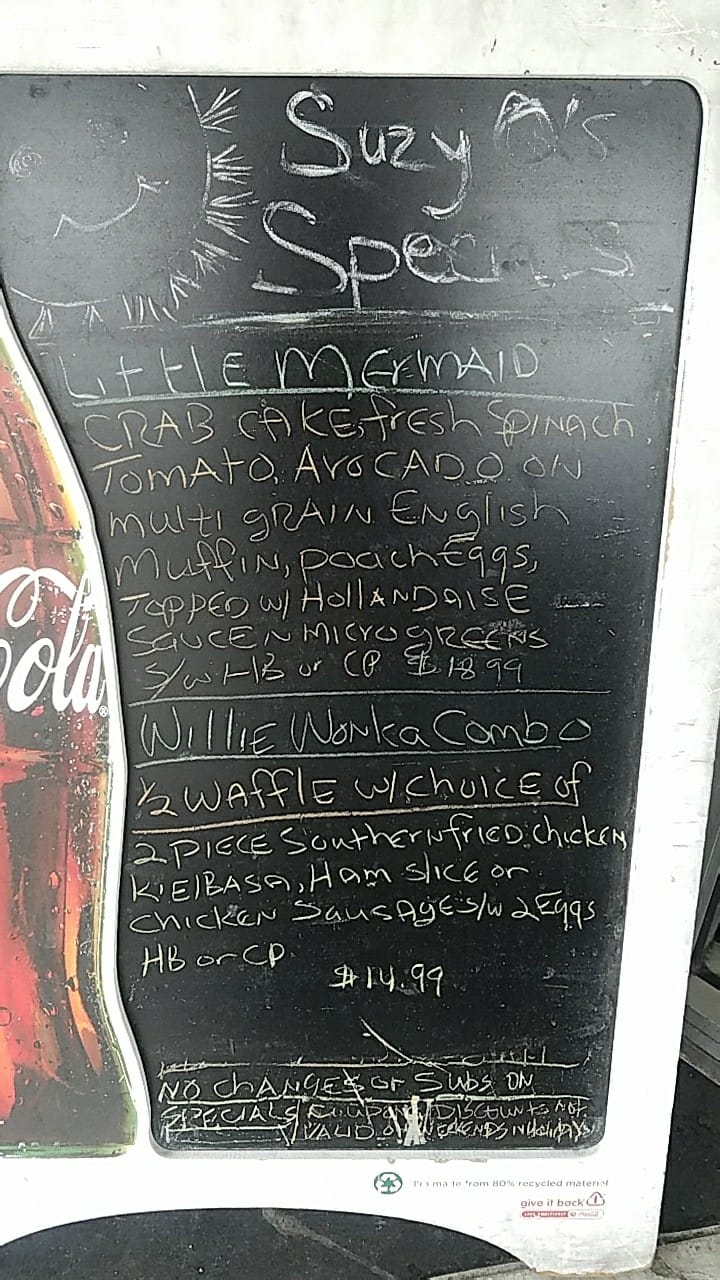 Suzy A's
Specials
Little Mermaid
CRAB CAKE, fresh Spinach,
Tomato, Avocado on
multi grain English
Muffin, poach Eggs,
Topped w/ Hollandaise
Sauce n micro greens
S/w HB or CP $18.99
Willie Wonka Combo
1/2 Waffle w/ choice of
2 piece Southern fried chicken,
Kielbasa, Ham slice or
chicken Sausage S/w 2 Eggs
HB or CP
$14.99
No changes or Subs on
Specials/Coupons/Discounts not
Valid on Weekends n Holidays
Cola
from 80% recycled material
give it back